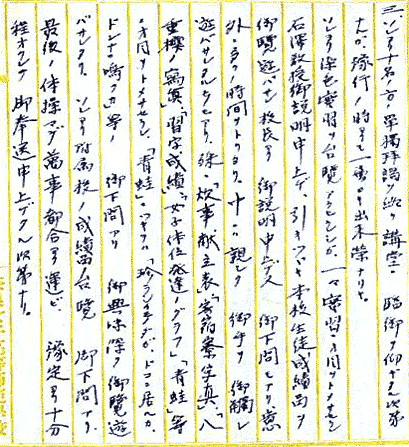 三、ソレヨリ十名ノ單獨拝謁ヲ終リ講堂ニ臨御ヲ仰ギ次第
ナルガ豫行ノ時ヨリモ一層ヨキ出来榮ナリキ。
ソレヨリ染色實習ヲ台覧アラセラレシガ、一々實習ニオ目トメサセ
石澤教授御説明申上ゲ、引キツヅキ本校生徒成績品ヲ
御覽遊バサレ校長ヨリ御説明申上グ又御下問モアリ意
外ニ多クノ時間ヲトリタリ。中ニハ親シク御手ヲ御觸レ
遊バサレタルモアリ。殊ニ「炊事献立表」「寄宿寮写真」「八
重樺ノ寫真」「習字成績」「女子体位発達ノグラフ」「青蛙」等
ニオ目ヲトメサセラレ「青蛙」ニツキテハ「珍ラシイモノダガ、ドコニ居ルカ、
ドンナニ鳴クカ」等ノ御下問アリ 御興味深ク御覽遊
バサレタリ。ソレヨリ附属校ノ成績品ノ台覧 御下問アリ
最後ノ体操マデ萬事都合ヨク運ビ、豫定ヨリ十分
程オクレテ御奉送申上ゲタル次第ナリ。